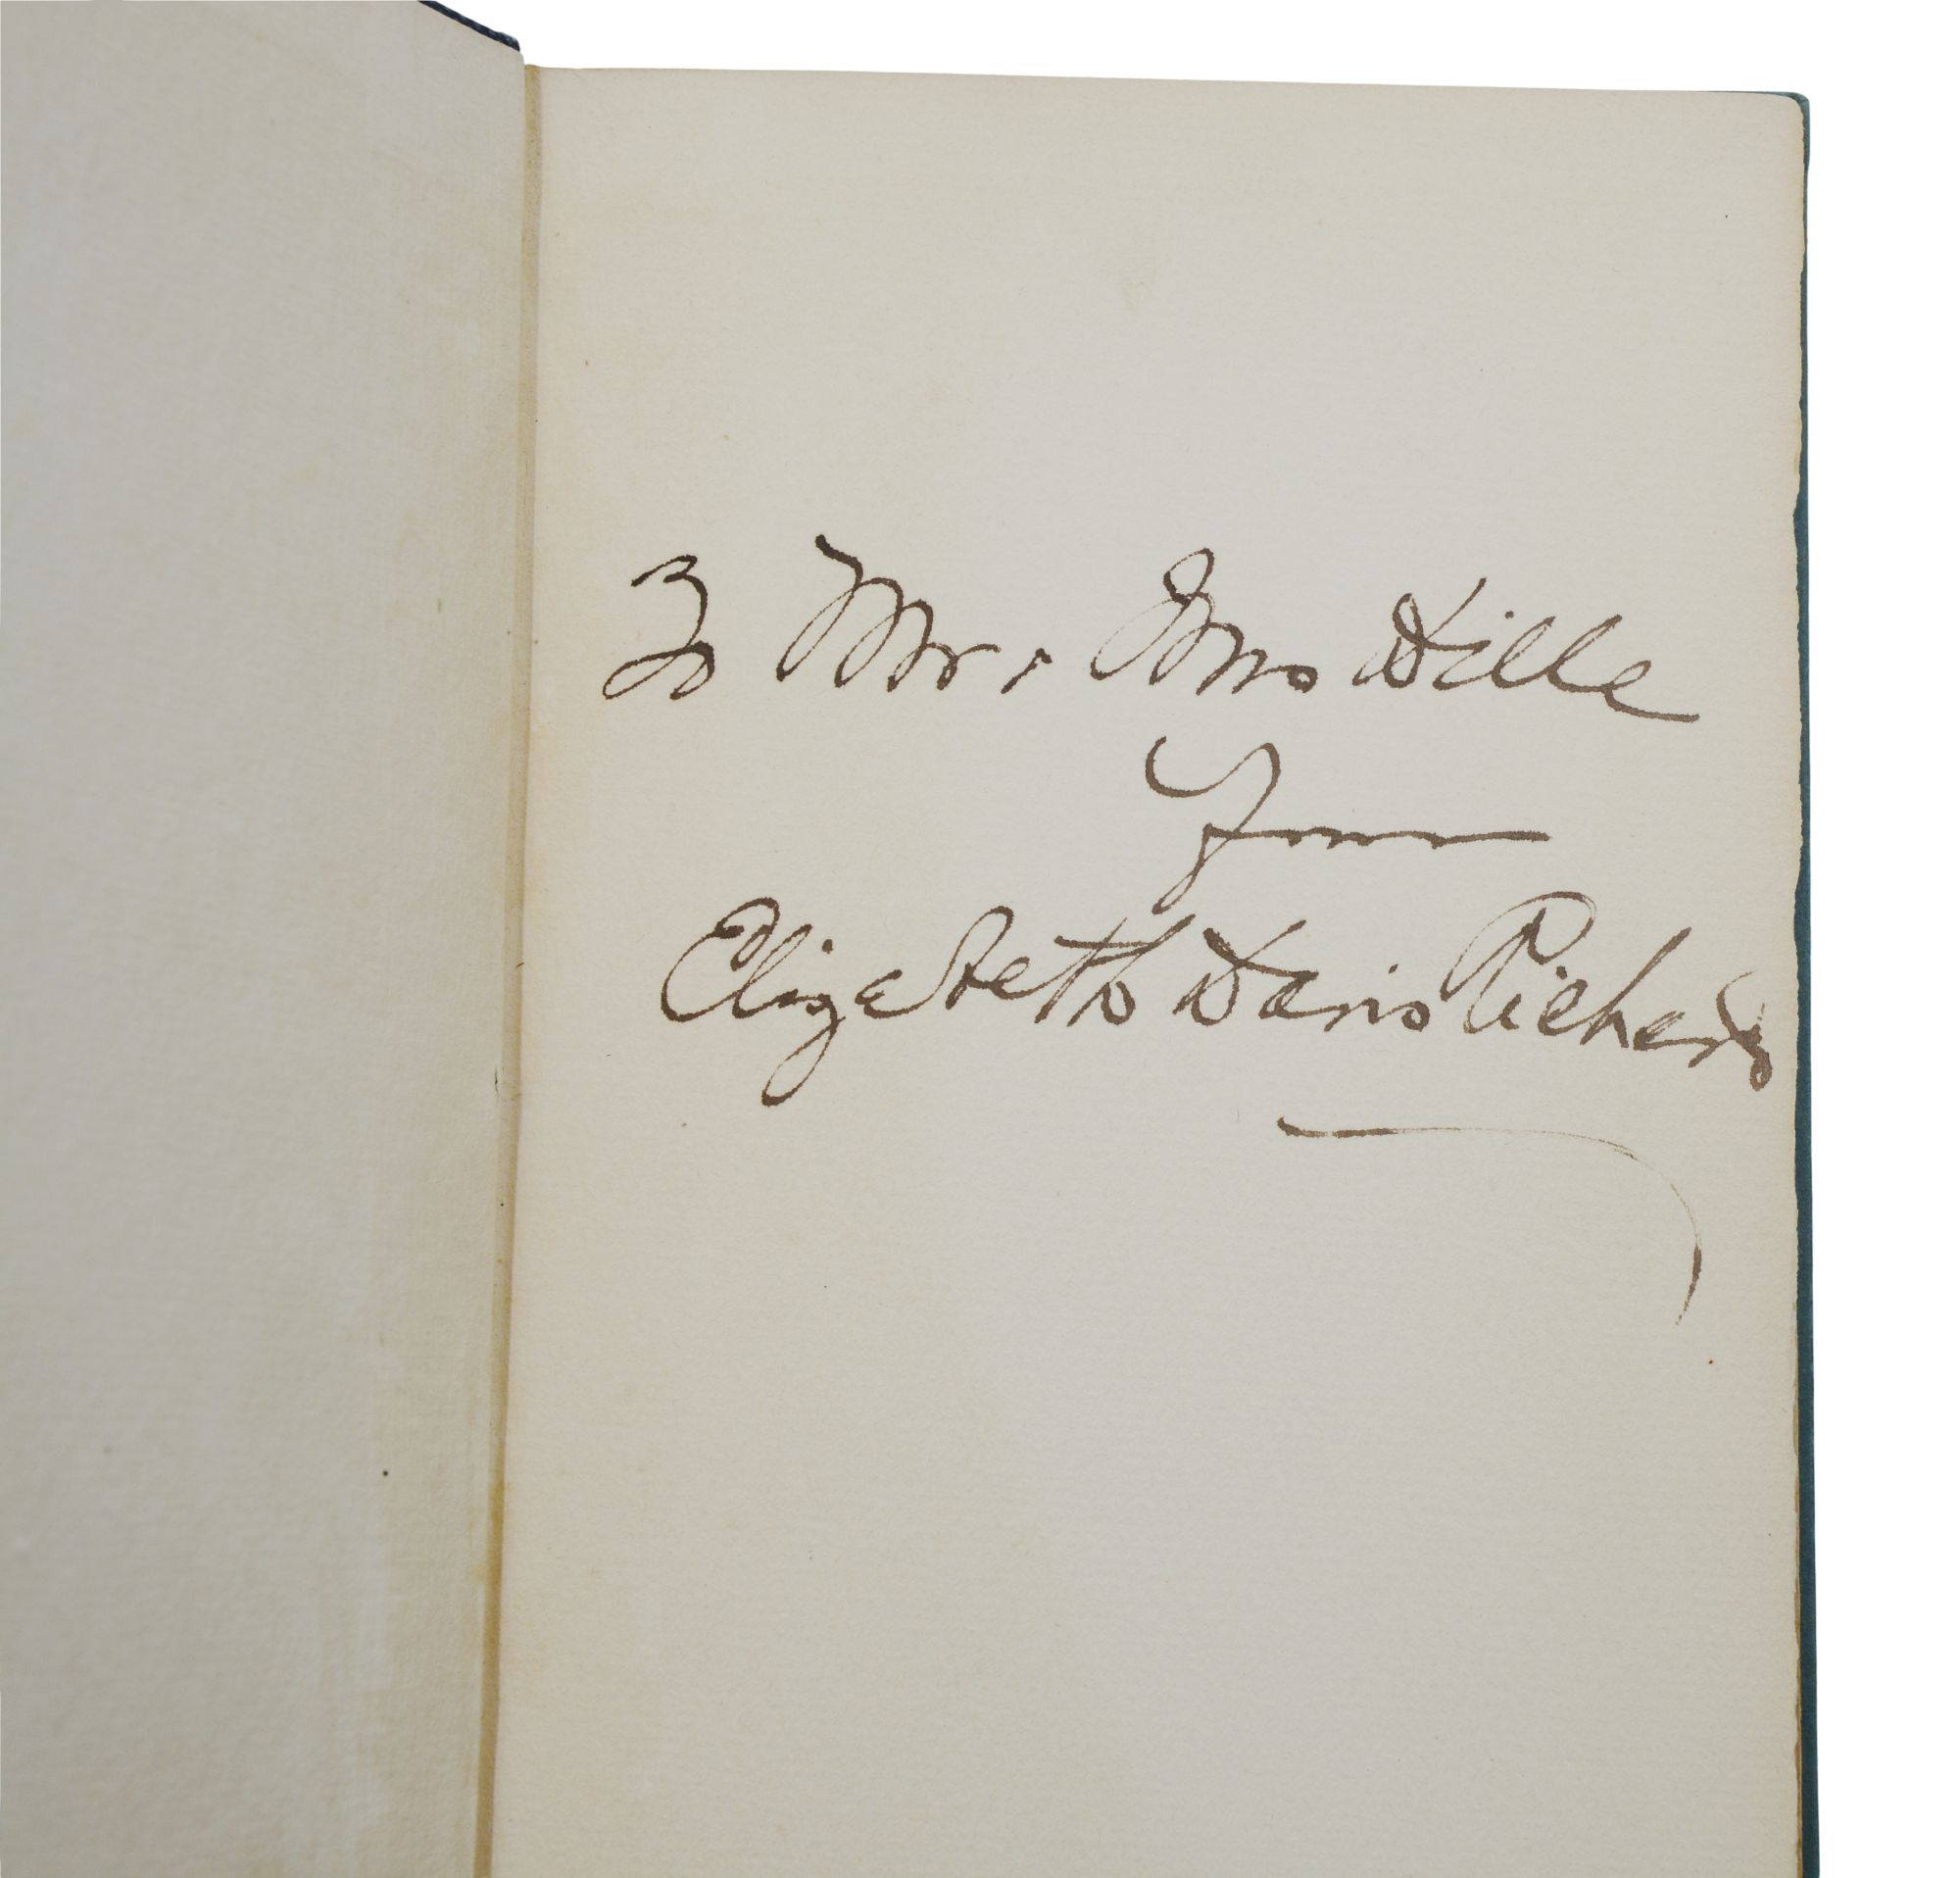 To Mr. & Mrs Hille
from
Elizabeth Davis Richards